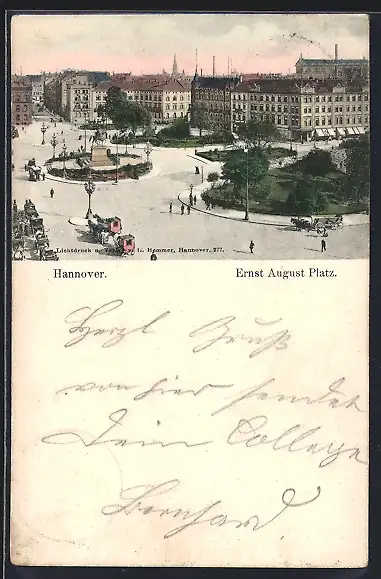 Lichtdruck u. G. Hammer, Hannover. 277.
Hannover. Ernst August Platz.
Herzl Gruß
von hier sendet
Dein College
Bernhard.